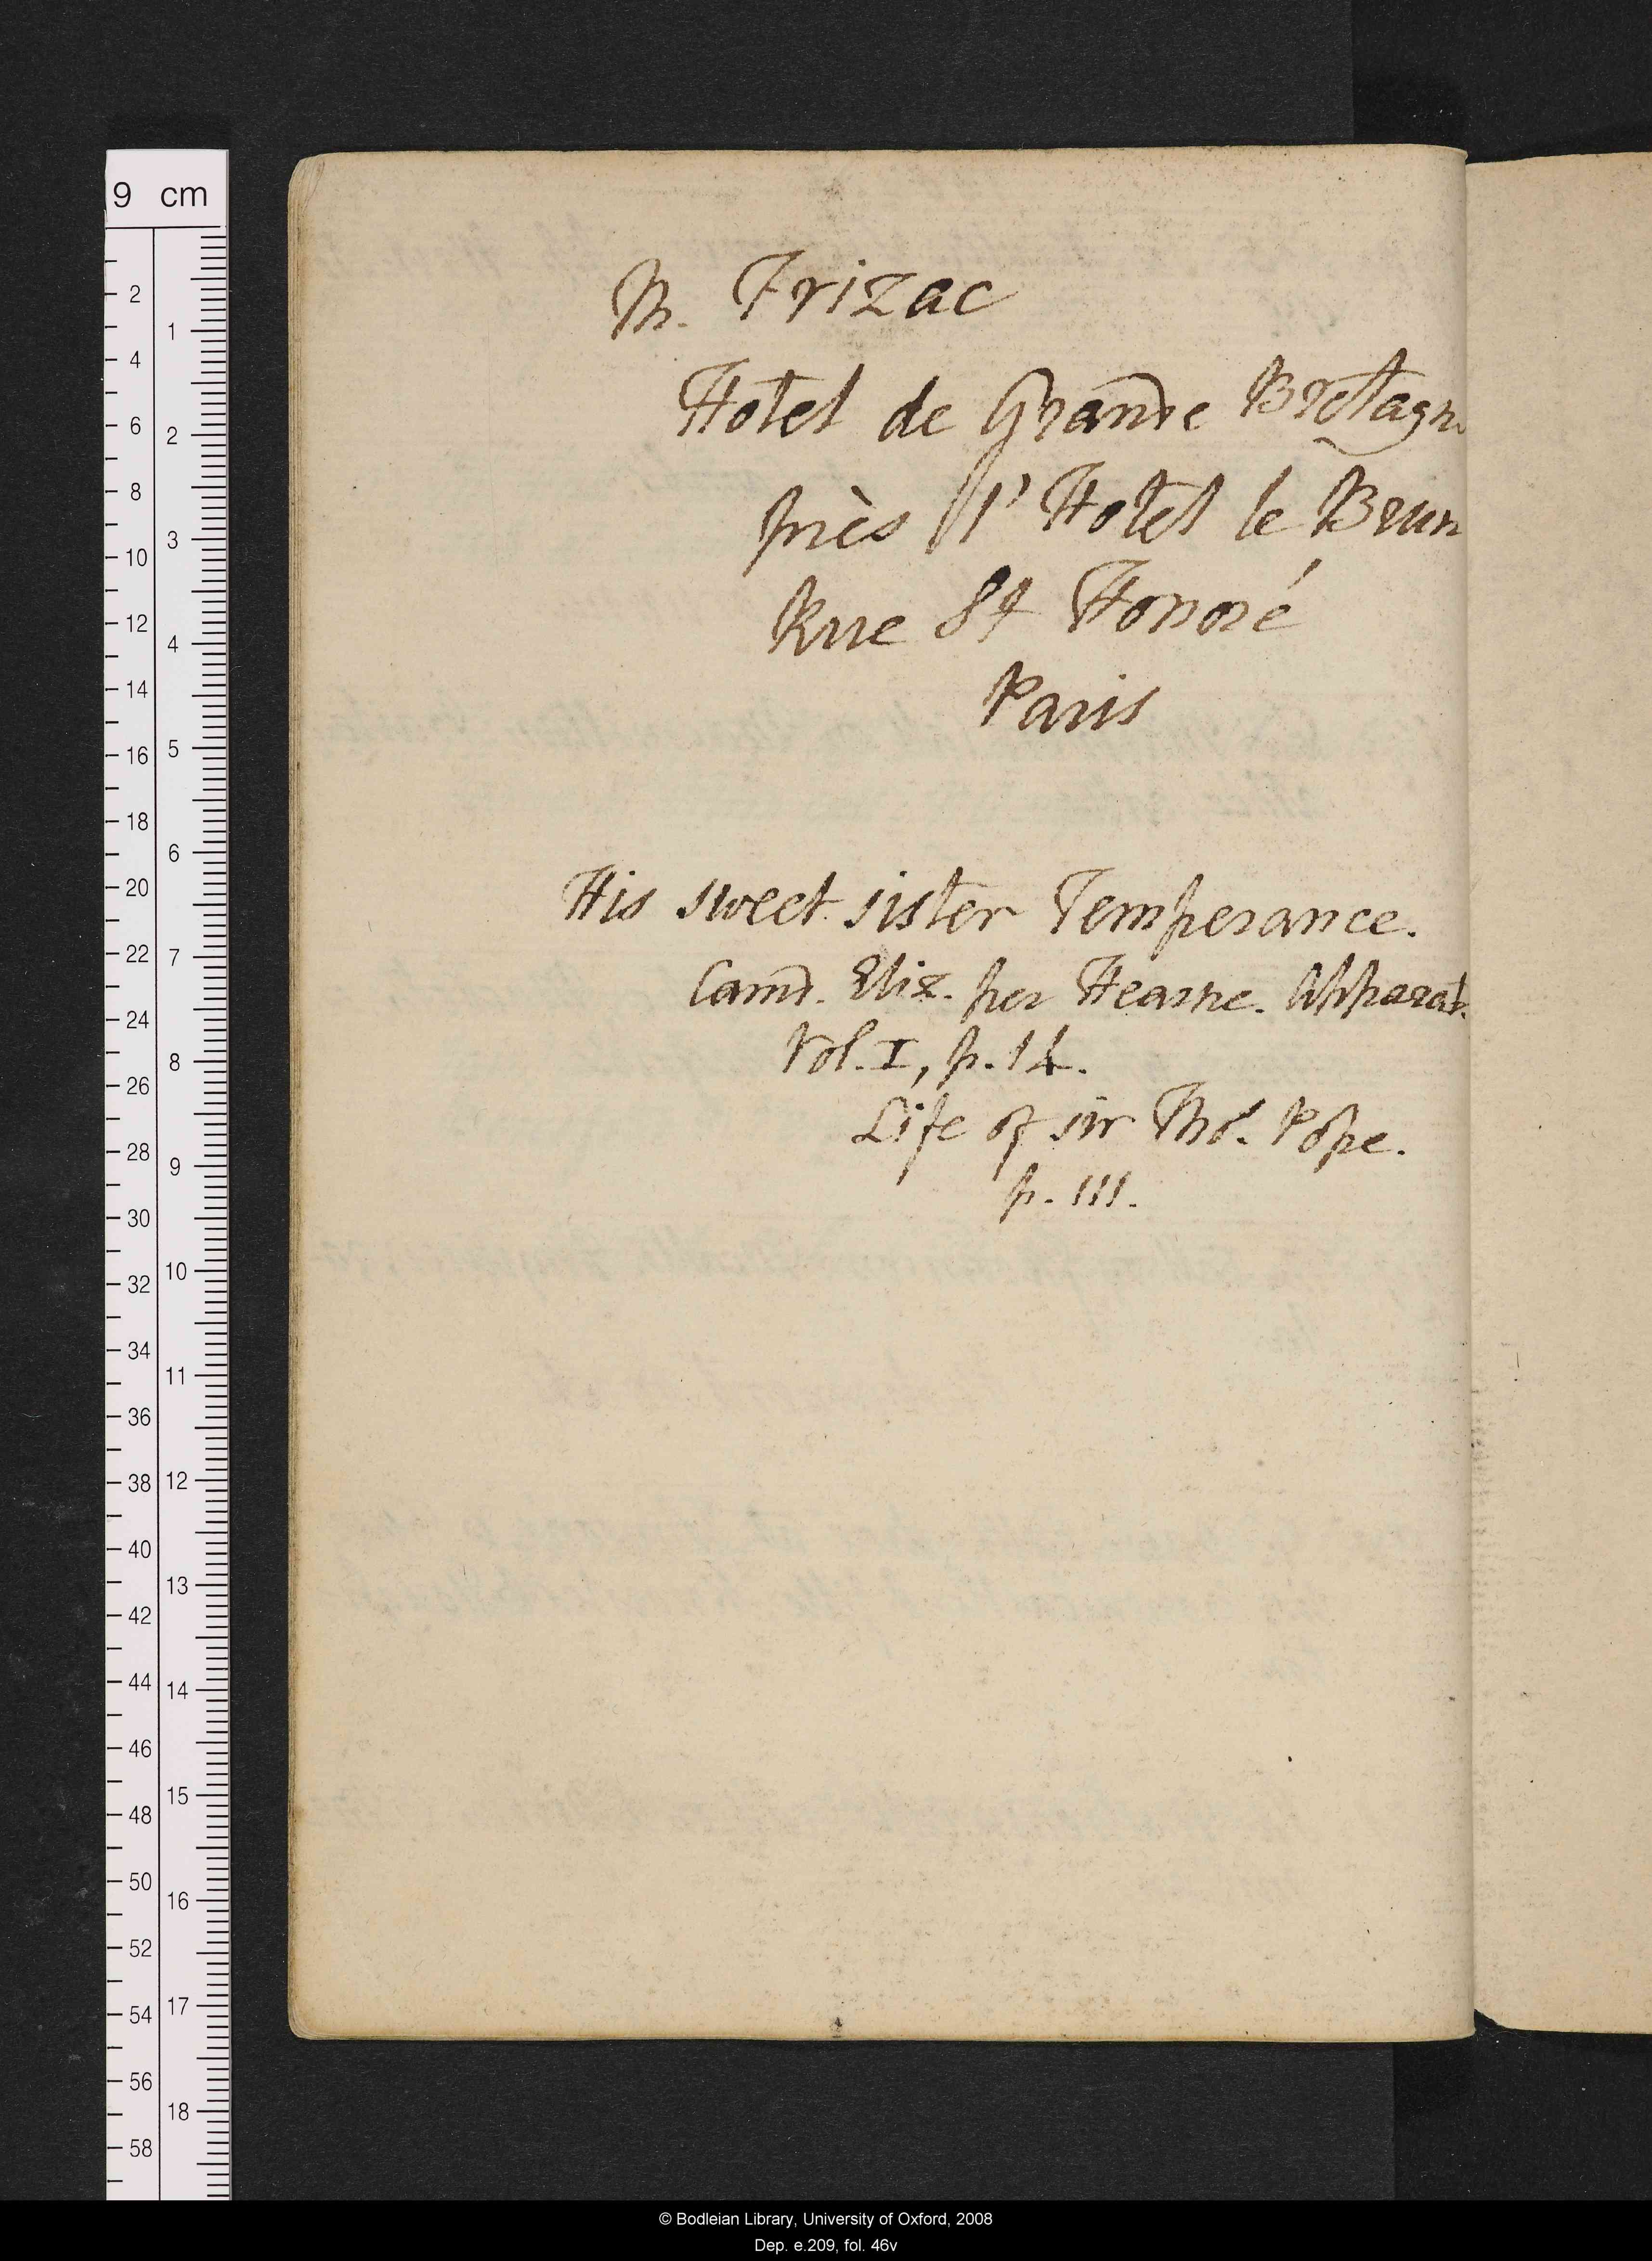 M. Frizac
Hotel de Grande Bretagn
près l'Hotel le Brun
Rue St Honoré
Paris
His sweet sister Temperance.
Camd. Eliz. per Hearne. Apparat.
Vol. I, p. 14.
Life of sir Tho. Pope.
p. 111.
9 cm
2
4
6
8
10
12
14
16
18
20
22
24
26
28
30
32
34
36
38
40
42
44
46
48
50
52
54
56
58
1
2
3
4
5
6
7
8
9
10
11
12
13
14
15
16
17
18
© Bodleian Library, University of Oxford, 2008
Dep. e.209, fol. 46v